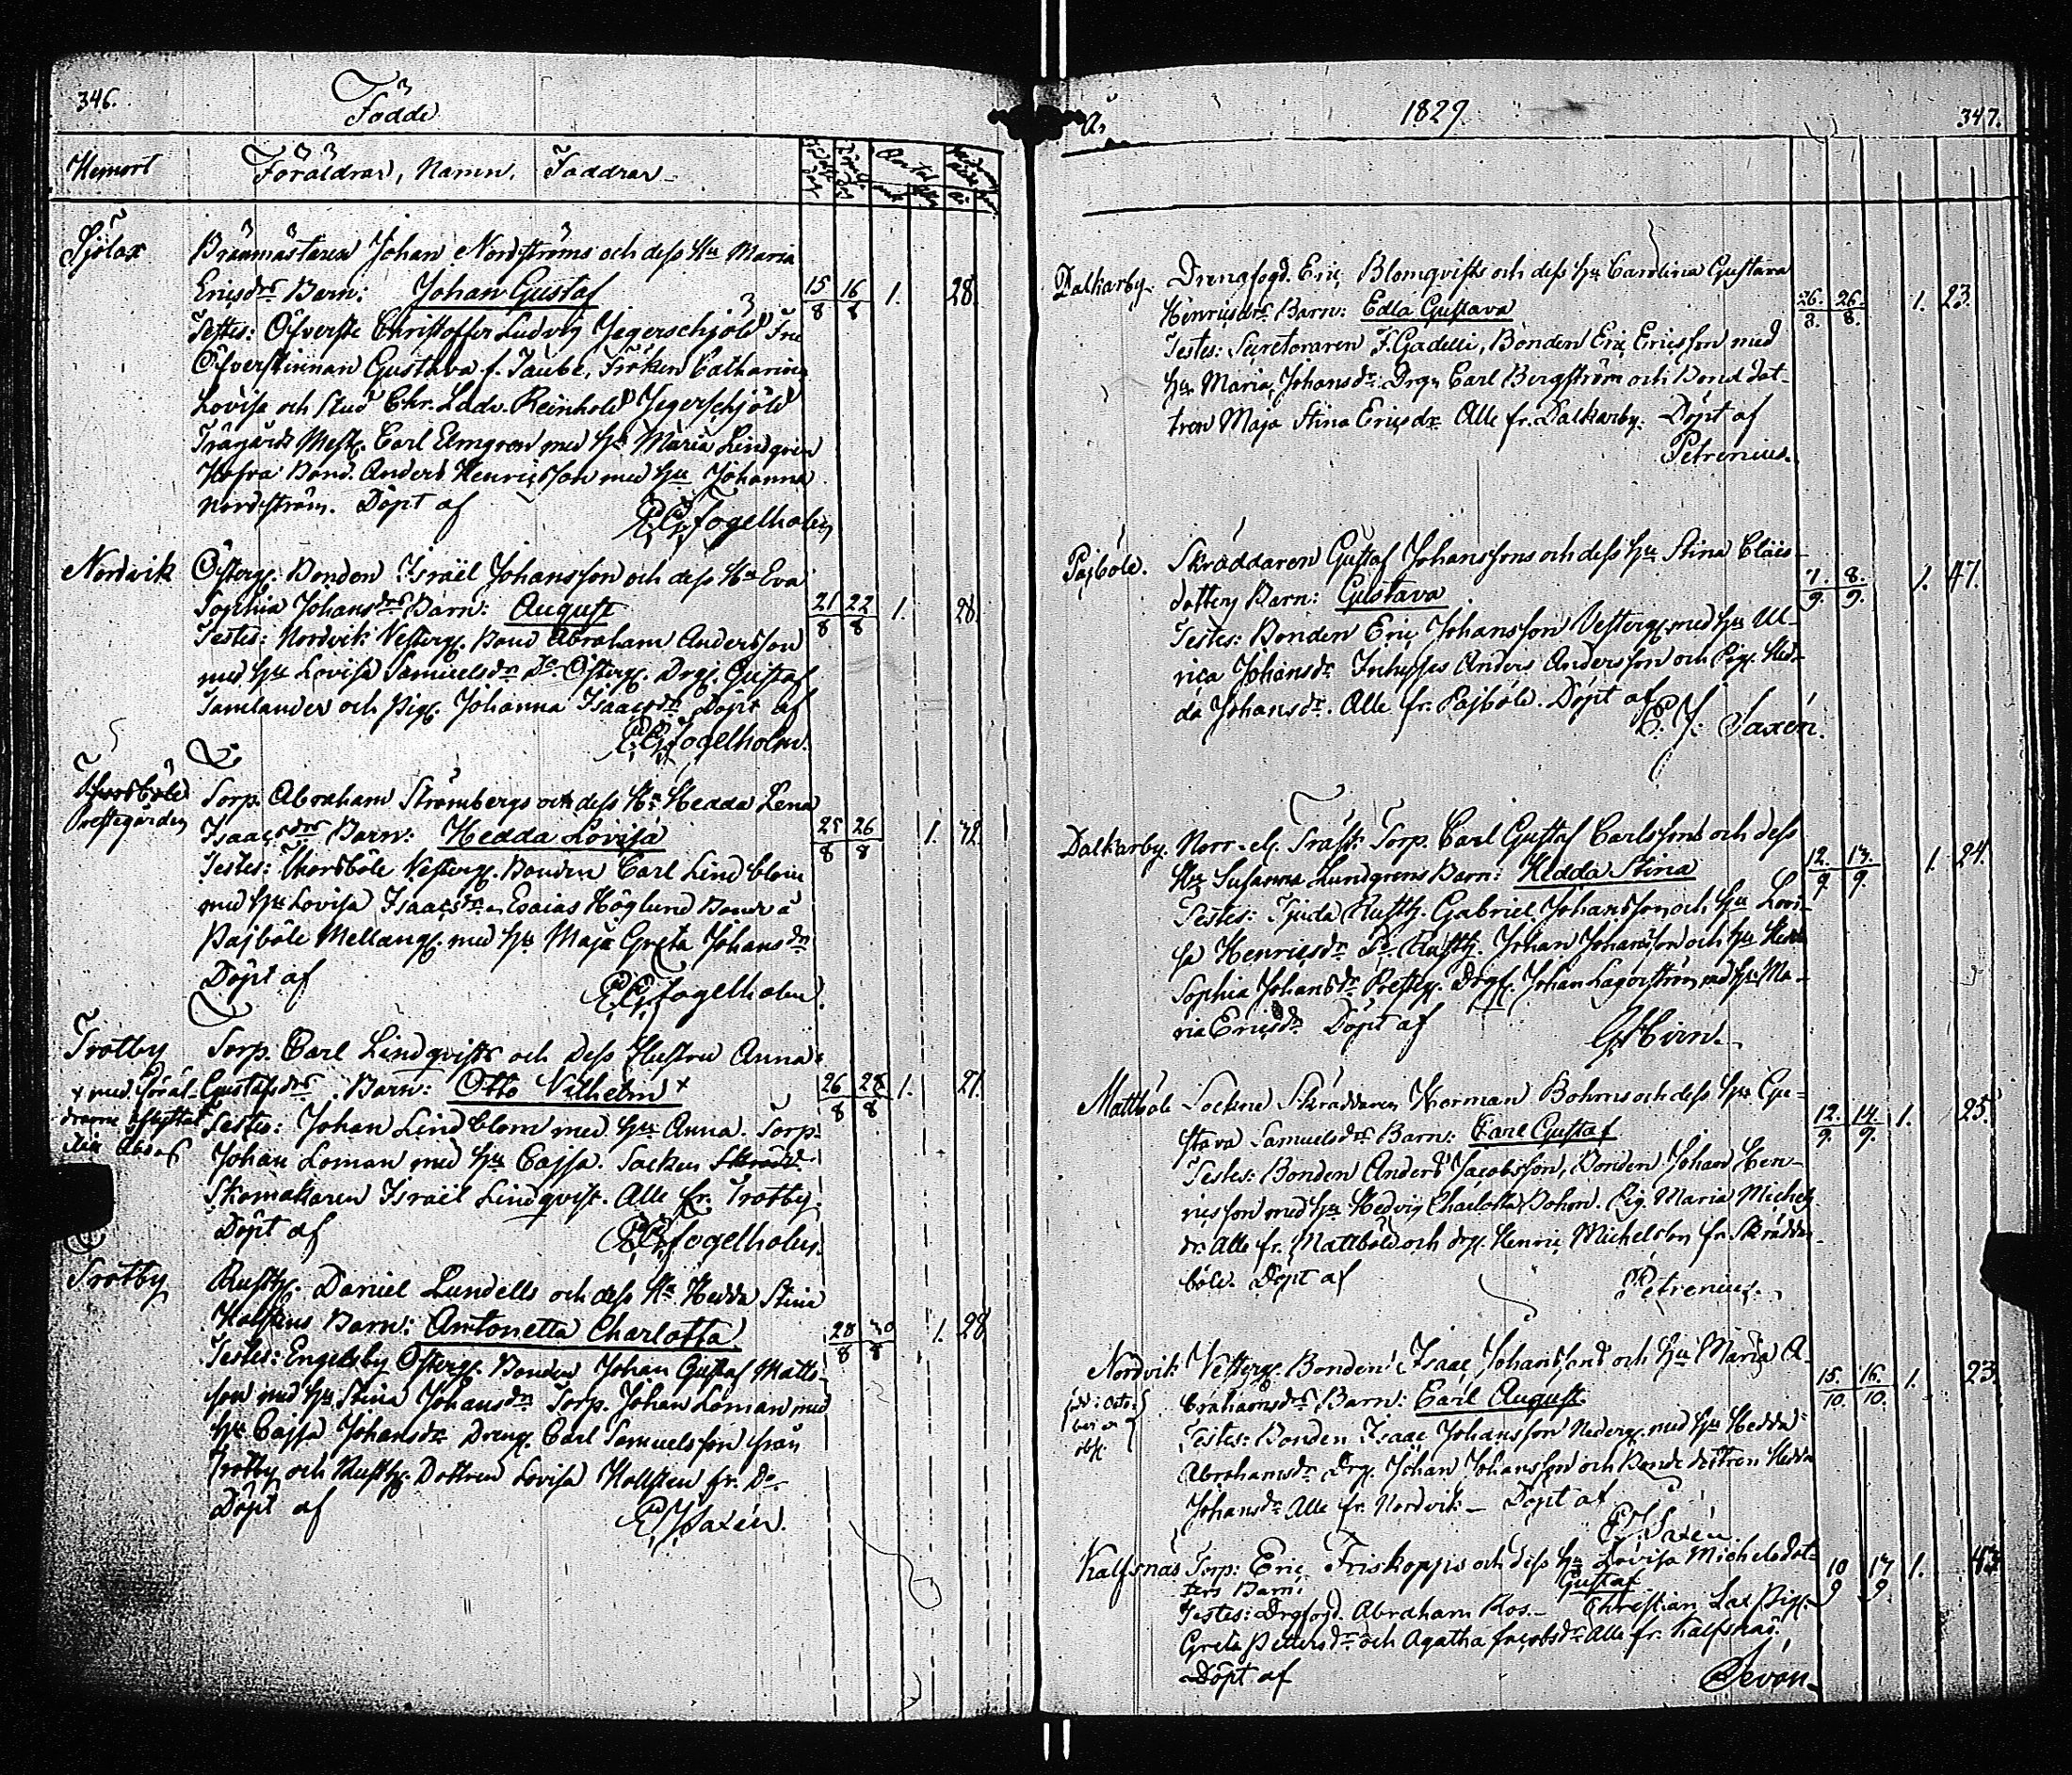 346.
Födde
Hemort Föräldrar, Namn, Faddrar
Sjölax Brännmästaren Johan Nordströms och dess Hu Maria
Ericsdrs Barn: Johan Gustaf 15/8 16/8 1. 28.
Testes: Öfverste Christoffer Ludvig Jegerschjöld Fru
Öfverstinnan Gustava f. Taube, Fröken Catharina
Lovisa och Stud Chr. Ludv. Reinhold Jegerschjöld
Trägårds Mest. Carl Elmgren med Hu Maria Lindqvin
Bond. Anders Henricsson med Hu Johanna
Nordström. Döpt af Fogelholm
Nordvik Österg. Bonden Israël Johansson och dess Hu Eva
Sophia Johansdrs Barn: August 21/8 22/8 1. 28.
Testes: Nordvik Vesterg. Bond Abraham Andersson
med Hu Lovisa Samuelsdr Do Österg. Drg. Gustaf
Jamlander och Pig. Johanna Isaacsdr Döpt af
Fogelholm.
Thordböle
Prestegården Torp. Abraham Strömbergs och dess Hu Hedda Lena
Isaacsdrs Barn: Hedda Lovisa 25/8 26/8 1. 42.
Testes: Thordböle Vesterg. Bonden Carl Lindblom
med Hu Lovisa Isaacsdr Esaias Höglund Bonde å
Pajböle Mellang. med Hu Maja Greta Johansdr
Döpt af Fogelholm
Trotby Torp. Carl Lindqvists och dess Hustru Anna
+ med föräl- Gustafsdrs Barn: Otto Vilhelm + 26/8 28/8 1. 27.
drarne
till Åbo Testes: Johan Lindblom med Hu Anna. Torp.
Johan Loman med Hu Cajsa. Socken
Skomakaren Israël Lindqvist. Alle fr. Trotby.
Döpt af Fogelholm.
Trotby Rusth. Daniel Lundells och dess Hu Hedda Stina
Hallstens Barn: Antonetta Charlotta 28/8 30/8 1. 28
Testes: Engelsby Österg. Bonden Johan Gustaf Matts-
son med Hu Stina Johansdr Torp. Johan Loman med
Hu Cajsa Johansdr Dreng. Carl Samuelsson från
Trotby och Rusth. Dottren Lovisa Hallsten fr. Do
Döpt af Saxén.
År 1829. 347.
Dalkarby. Drengfogd. Eric Blomqvists och dess Hu Carolina Gustava
Henricsdrs Barn: Edla Gustava 26./8. 26./8. 1. 23.
Testes: Secretoraren F. Gadelli, Bonden Eric Ericsson med
Hu Maria Johansdr Drgn Carl Bergström och Bond dot-
tren Maja Stina Ericsdr Alle fr. Dalkarby. Döpt af
Petrenius.
Pajböle. Skräddaren Gustaf Johanssons och dess Hu Stina Claës-
dotters Barn: Gustava 7./9. 8./9. 1. 47.
Testes: Bonden Eric Johansson Vesterg. med Hu Ul-
rica Johansdr Inhyses Anders Andersson och Pig. Hed-
da Johansdr. Alle fr. Pajböle. Döpt af
E. J. Saxén.
Dalkarby. Norr. Träsk Torp. Carl Gustaf Carlssons och dess
Hu Susanna Lundgrens Barn: Hedda Stina 12./9. 13./9. 1. 24.
Testes: Tjuda Rusth. Gabriel Johansson och Hu Lovi-
sa Henricsdr Do Rusth. Johan Johansson och Hu
Sophia Johansdr Presteg. Drg. Johan Lagerström med Hu Ma-
ria Ericsdr Döpt af Hirn.
Mattböle Sockne Skräddaren Herman Bohms och dess Hu Gu-
stava Samuelsdrs Barn: Carl Gustaf 12./9. 14./9. 1. 25.
Testes: Bonden Anders Jacobsson, Bonden Johan Hen-
ricsson med Hu Hedvig Charlotta Bohm. Pig. Maria Michels
dr. Alle fr. Mattböle och drg. Henric Michelsson fr. Skrädder-
böle. Döpt af Petrenius.
Nordvik Vesterg. Bonden Isaac Johanssons och Hu Maria A-
brahamsdrs Barn: Carl August. 15./10. 16./10. 1. 23.
Testes: Bonden Isaac Johansson Nederg. med Hu Hedda
Abrahamsdr Drg. Johan Johansson och Bonde dottren Hedda
Johansdr Alle fr. Nordvik – Döpt af
E. J. Saxén
Kalfsnäs Torp: Eric Friskopps och dess Hu Lovisa Michelsdot-
ters Barn: Gustaf 10/9 17/9 1. 43
Testes: Drgfogd. Abraham Ros. – Christian Lax Pig.
Greta Pettersdr och Agatha Jacobsdr Alle fr. Kalfsnäs.
Döpt af Sevón